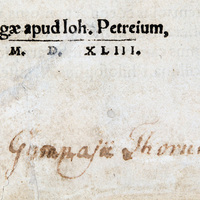 gæ apud Ioh. Petreium,
M. D. XLIII.
Gymnasii Thorun